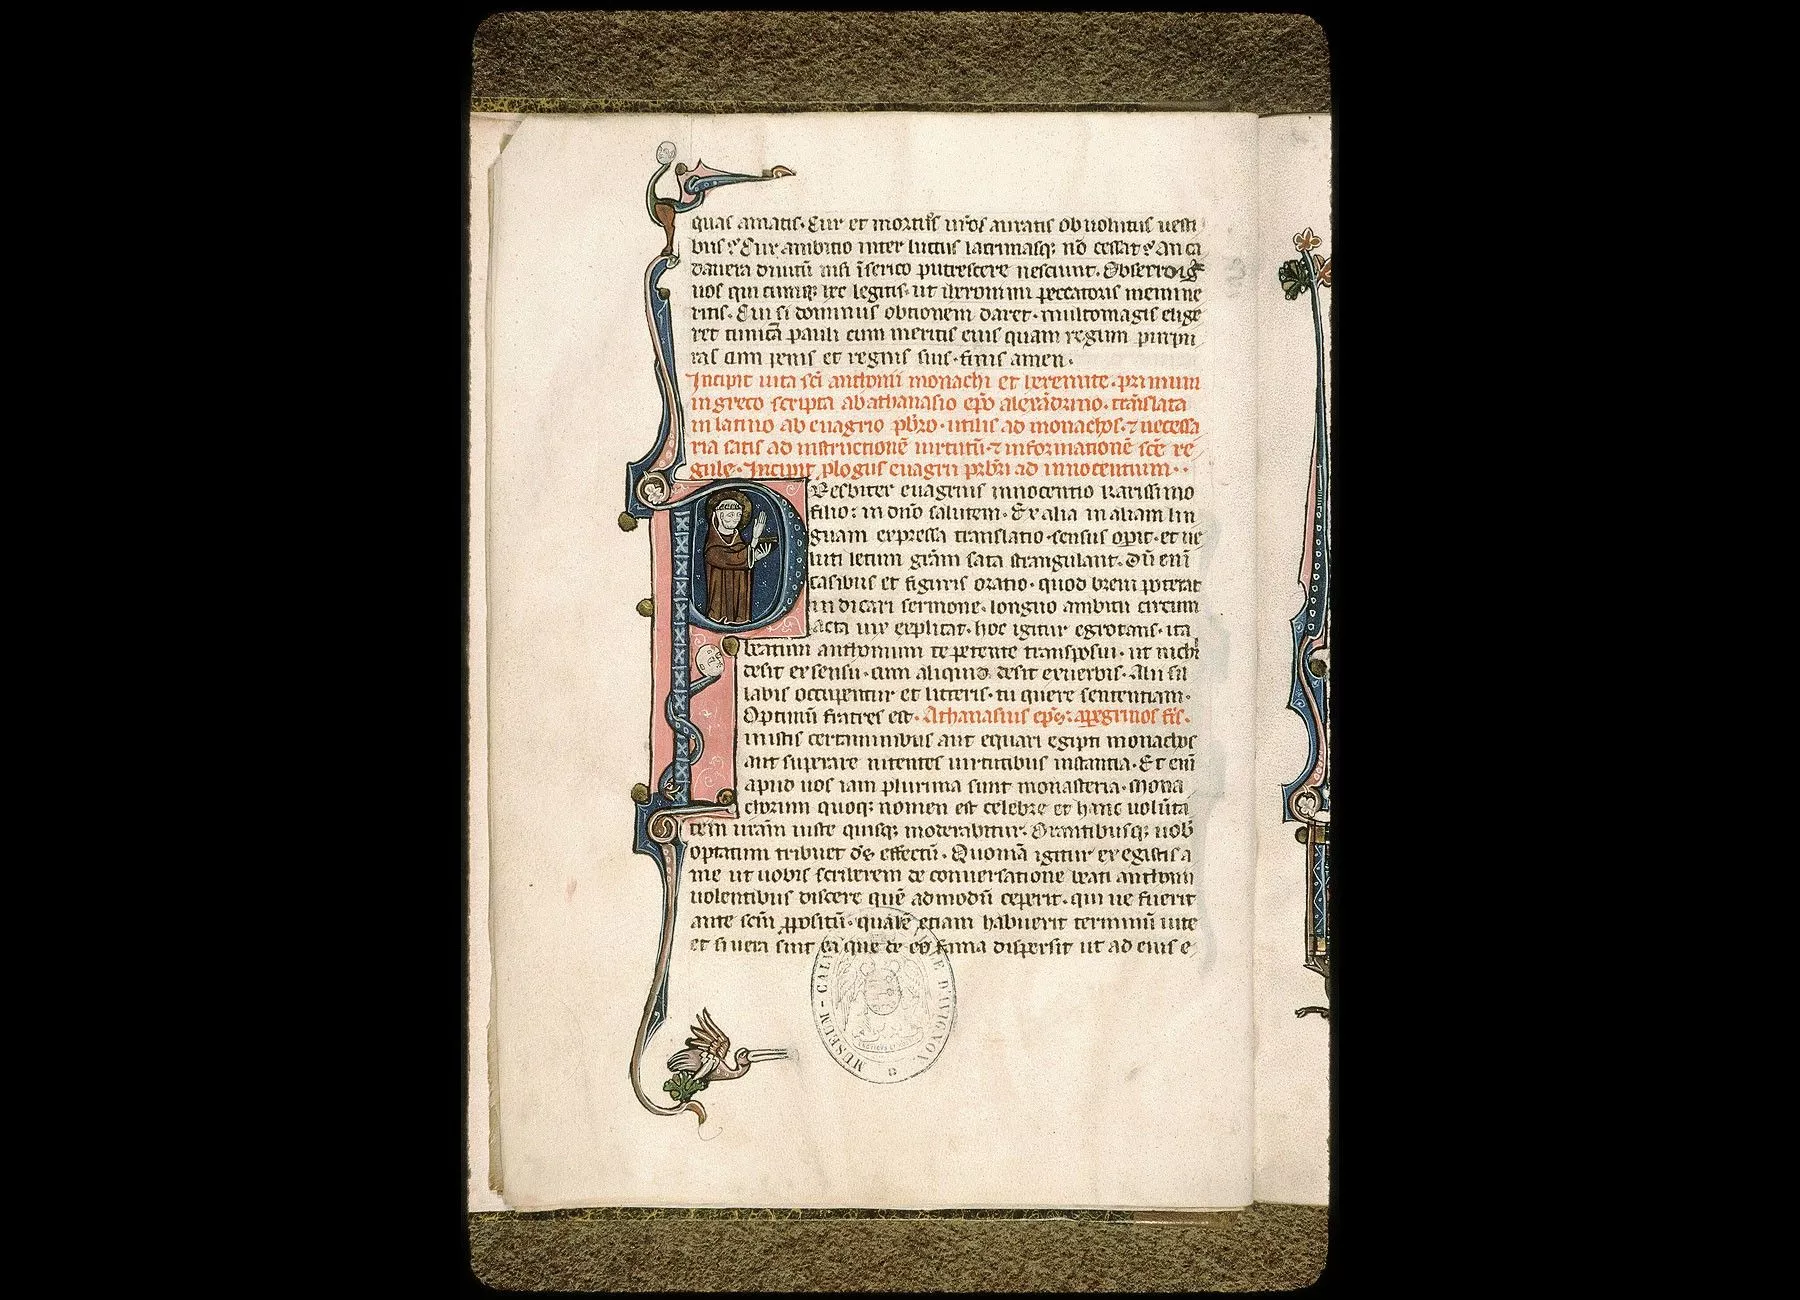 quas amatis. Cur et mortuos uros auratis obuoluitis uesti
bus? Cur ambitio inter luctus lacrimasq; nō cessat? An ca
dauera diuitū nisi ī serico putrescere nesciunt. Obsecro
uos qui cumq; hec legitis. ut ieronimi peccatoris memine
ritis. Cui si dominus obtionem daret. multomagis elige
ret tunicā pauli cum meritis eius quam regum purpu
ras cum penis et regnis suis. finis amen.
Incipit uita sci anthonii monachi et heremite. primum
in greco scripta ab athanasio epō alexādrino. trāslata
in latino ab euagrio pbro. utilis ad monachos. ⁊ necessa
ria satis ad instructionē uirtutū. ⁊ informationē scē re
gule. Incipit plogus euagrii prbri ad innocentium.
PResbiter euagrius innocentio karissimo
filio: in dno salutem. Ex alia in aliam lin
guam expressa translatio. sensus opit. et ue
luti letum grām sata strangulant. Dū enī
casibus et figuris oratio. quod breui poterat
indicari sermone. longuo ambitu circum
acta uix explicat. hoc igitur egrotans. ita
beatum anthonium te petente transposui. ut nichi
desit ex sensu. cum aliquid desit ex uerbis. Alii sil
labis occupentur et litteris. tu quere sententiam.
Optimū fratres est. Athanasius eps: apegrinos frs.
inistis certaminibus aut equari egipti monachos
aut superare nitentes uirtutibus instantia. Et enī
apud uos iam plurima sunt monasteria. Mona
chorum quoq; nomen est celebre et hanc uolūta
tem urām iuste quisq; moderabitur. Orantibusq; uob
optatum tribuet ds effectū. Quoniā igitur exegistis a
me ut uobis scriberem de conuersatione beati anthonii
uolentibus discere quē admodū ceperit. qui ue fuerit
ante scm ppositū. qualē etiam habuerit terminū uite
et si uera sint ea que de eo fama dispersit ut ad eius e
MUSEUM - CALVET VILLE D'AVIGNON